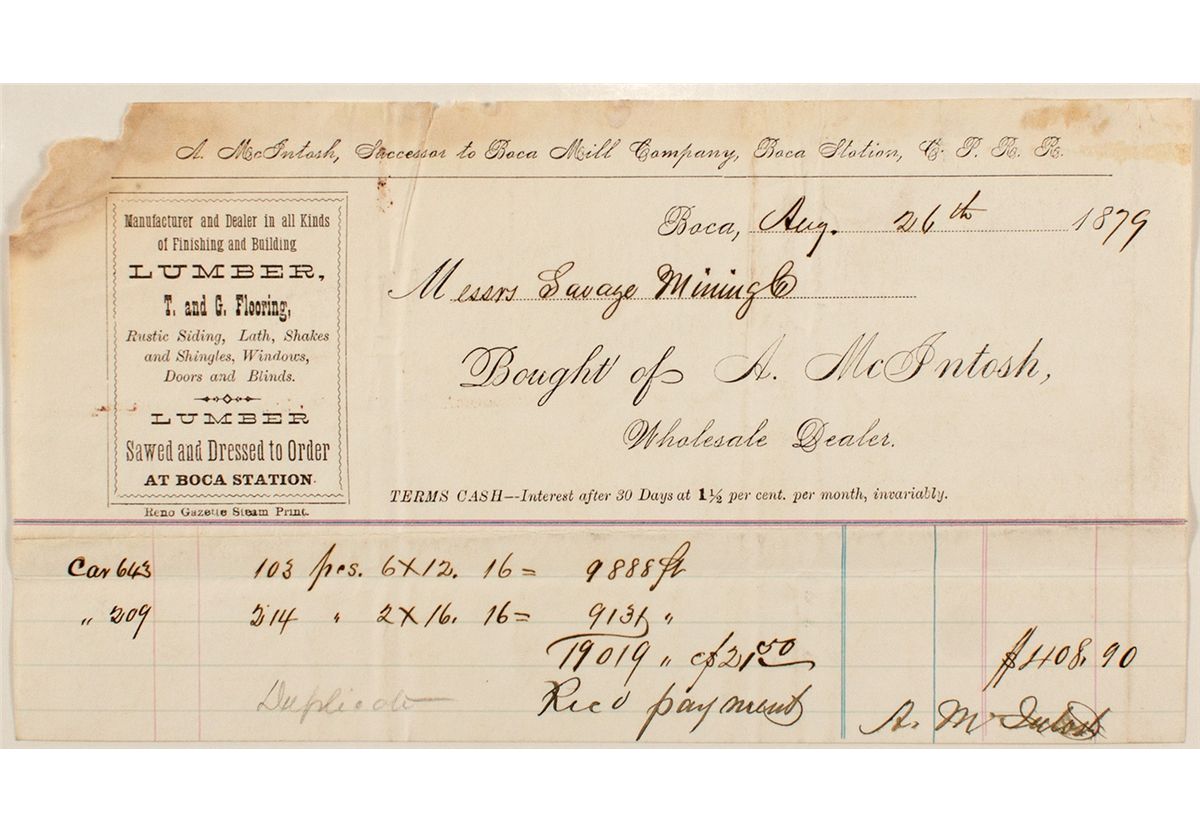 A. McIntosh, Successor to Boca Mill Company, Boca Station, C. P. R. R.
Manufacturer and Dealer in all Kinds
of Finishing and Building
LUMBER,
T. and G. Flooring,
Rustic Siding, Lath, Shakes
and Shingles, Windows,
Doors and Blinds.
LUMBER
Sawed and Dressed to Order
AT BOCA STATION.
Reno Gazette Steam Print.
Boca, Aug. 26th 1879
Messrs Savage Mining Co
Bought of A. McIntosh,
Wholesale Dealer.
TERMS CASH--Interest after 30 Days at 1½ per cent. per month, invariably.
Car 643 103 pcs. 6X12. 16= 9888 ft
" 209 214 " 2X16. 16= 9131 "
19019 " @ 21.50 $408.90
Duplicate Recd payment A. McIntosh